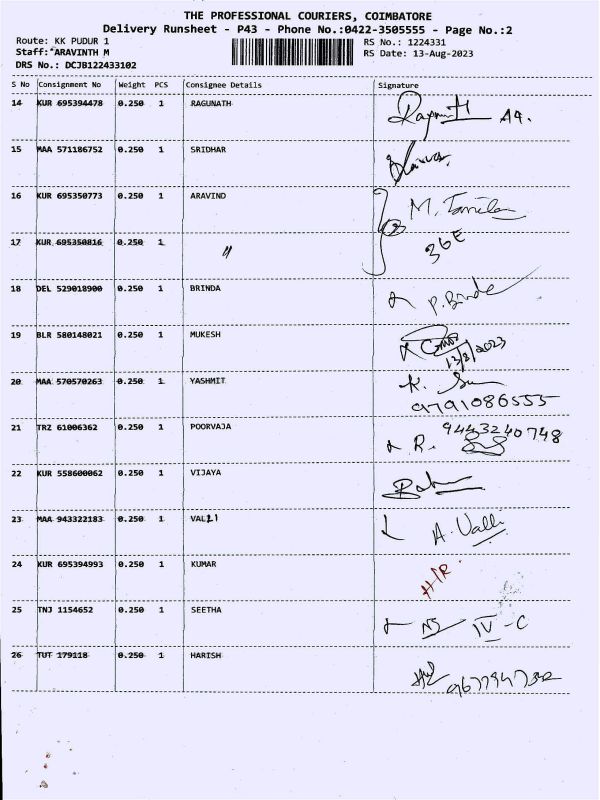 THE PROFESSIONAL COURIERS, COIMBATORE
Delivery Runsheet - P43 - Phone No.:0422-3505555 - Page No.:2
Route: KK PUDUR 1 RS No.: 1224331
Staff: ARAVINTH M RS Date: 13-Aug-2023
DRS No.: DCJB122433102
S No Consignment No Weight PCS Consignee Details Signature
14 KUR 695394478 0.250 1 RAGUNATH
15 MAA 571186752 0.250 1 SRIDHAR
16 KUR 695350773 0.250 1 ARAVIND M.
17 KUR 695350816 0.250 1 〃 36E
18 DEL 529018900 0.250 1 BRINDA P. Brinda
19 BLR 580148021 0.250 1 MUKESH
13/8/2023
20 MAA 570570263 0.250 1 YASHMIT K.
9791086555
21 TRZ 61006362 0.250 1 POORVAJA 9443240748
R.
22 KUR 558600062 0.250 1 VIJAYA
23 MAA 943322183 0.250 1 VALLI A. Valli
24 KUR 695394993 0.250 1 KUMAR H/R
25 TNJ 1154652 0.250 1 SEETHA NS IV-C
26 TUT 179118 0.250 1 HARISH